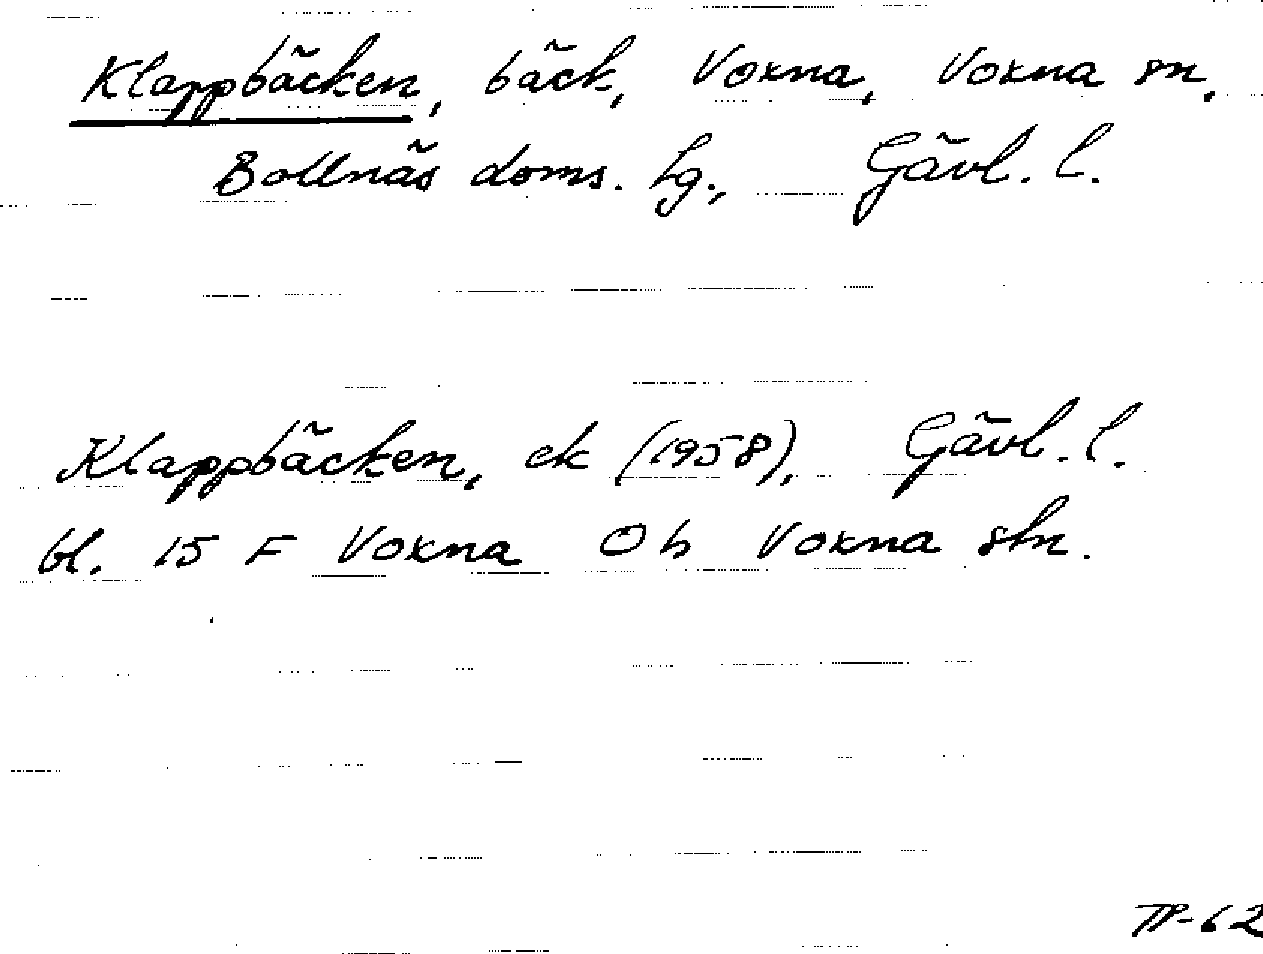 Klappbäcken, bäck, Voxna, Voxna sn.
Bollnäs doms. lg., Gävl. l.
Klappbäcken, ek (1958), Gävl. l.
bl. 15 F Voxna Ob Voxna stn.
TP-62